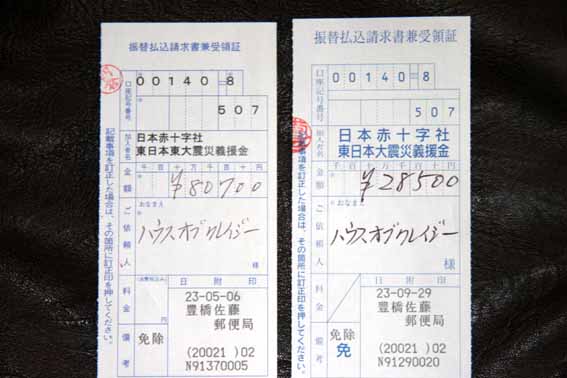 振替払込請求書兼受領証
口座記号番号
00140 8
507
加入者名
日本赤十字社
東日本大震災義援金
金額
千 百 十 万 千 百 十 円
¥80700
ご依頼人
おなまえ
ハウスオブクレイジー
様
料金
消費税込み
円
日附印
23-05-06
豊橋佐藤
郵便局
備考
免除
(20021 )02
N91370005
記載事項を訂正した場合は、その箇所に訂正印を押してください。
振替払込請求書兼受領証
口座記号番号
00140 8
507
加入者名
日本赤十字社
東日本大震災義援金
金額
千 百 十 万 千 百 十 円
¥28500
ご依頼人
おなまえ
ハウスオブクレイジー
様
料金
日附印
23-09-29
豊橋佐藤
郵便局
備考
免除
免
(20021 )02
N91290020
記載事項を訂正した場合は、その箇所に訂正印を押してください。